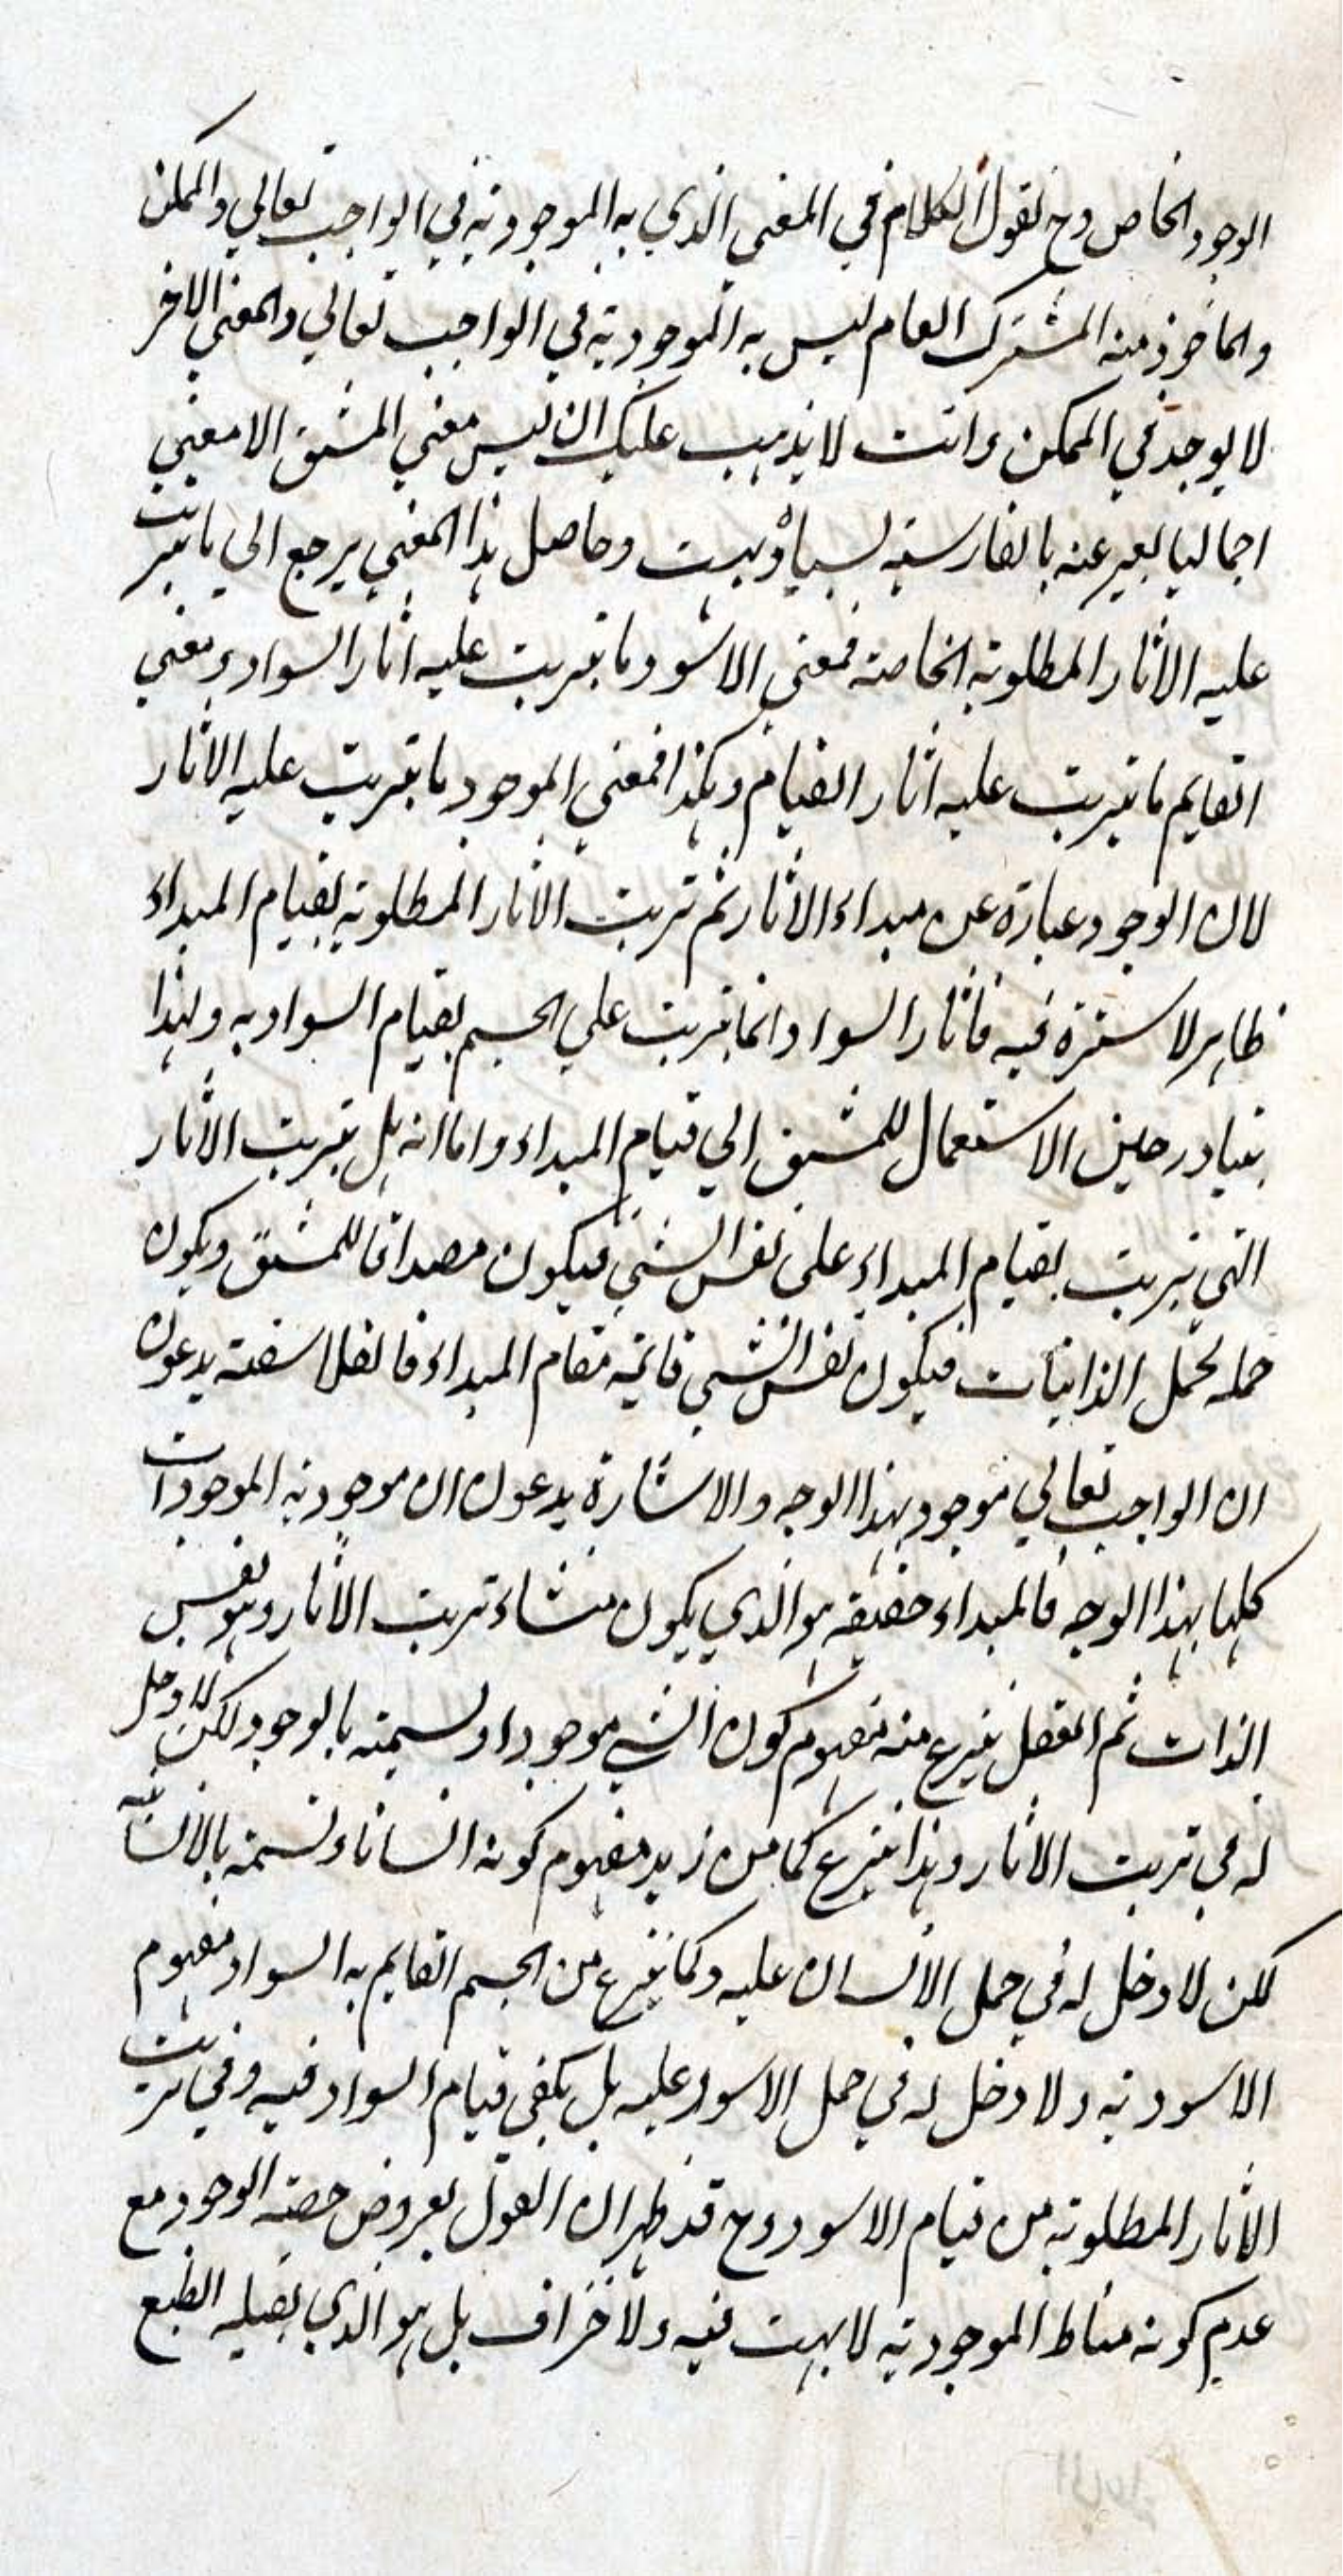 الوجود الخاص وح نقول الكلام في المعني الذي به الموجودية في الواجب تعالي والممكن
والماخوذ منه المشترك العام ليس به الموجودية في الواجب تعالي والمعني الاخر
لا يوجد في الممكن وانت لا يذهب عليك ان ليس معني المشتق الا معني
اجماليا يعبر عنه بالفارسية لسياه وهست وحاصل هذا المعني يرجع الي ما يترتب
عليه الاثار المطلوبة الخاصة فمعني الاسود ما يترتب عليه اثار السواد ومعني
القايم ما يترتب عليه اثار القيام وهكذا فمعني الموجود ما يترتب عليه الاثار
لان الوجود عبارة عن مبداء الاثار ثم ترتب الاثار المطلوبة بقيام المبداء
ظاهر لا سترة فيه فاثار السواد انما يترتب علي الجسم بقيام السواد به ولهذا
يتبادر حين الاستعمال للمشتق الي قيام المبداء واما انه هل يترتب الاثار
التي يترتب بقيام المبداء على نفس الشي فيكون مصداقا للمشتق ويكون
حمله كحمل الذاتيات فيكون نفس الشي قائمة مقام المبداء فالفلاسفة يدعون
ان الواجب تعالي موجود بهذا الوجه والاشارة يدعون ان موجودية الموجودات
كلها بهذا الوجه فالمبداء حقيقة هو الذي يكون منشاء ترتب الاثار وهو نفس
الذات ثم العقل ينتزع منه مفهوم كون الشي موجودا ولسميته بالوجود لكن لا دخل
له في ترتب الاثار وهذا ينتزع كما من زيد مفهوم كونه انسانا ولسميته بالانسانية
لكن لا دخل له في حمل الانسان عليه وكما ينتزع من الجسم القايم به السواد مفهوم
الاسودية ولا دخل له في حمل الاسود عليه بل يكفي قيام السواد فيه وفي ترتب
الاثار المطلوبة من قيام الاسود وح قد ظهر ان القول بعروض حصة الوجود مع
عدم كونه مناط الموجودية لا بهت فيه ولا خزاف بل هو الذي يقبله الطبع